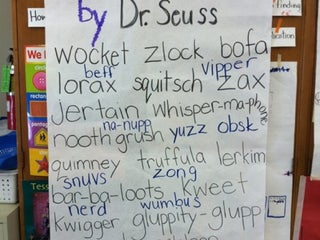 by Dr. Seuss
wocket zlock bofa
beff vipper
lorax squitsch zax
jertain whisper-ma-phone
na-nupp yuzz obsk
nooth grush
quimney truffula lerkim
snuvs zong
bar-ba-loots kweet
nerd wumbus
kwigger gluppity-glupp
How
We
rectangle
Tess
finding